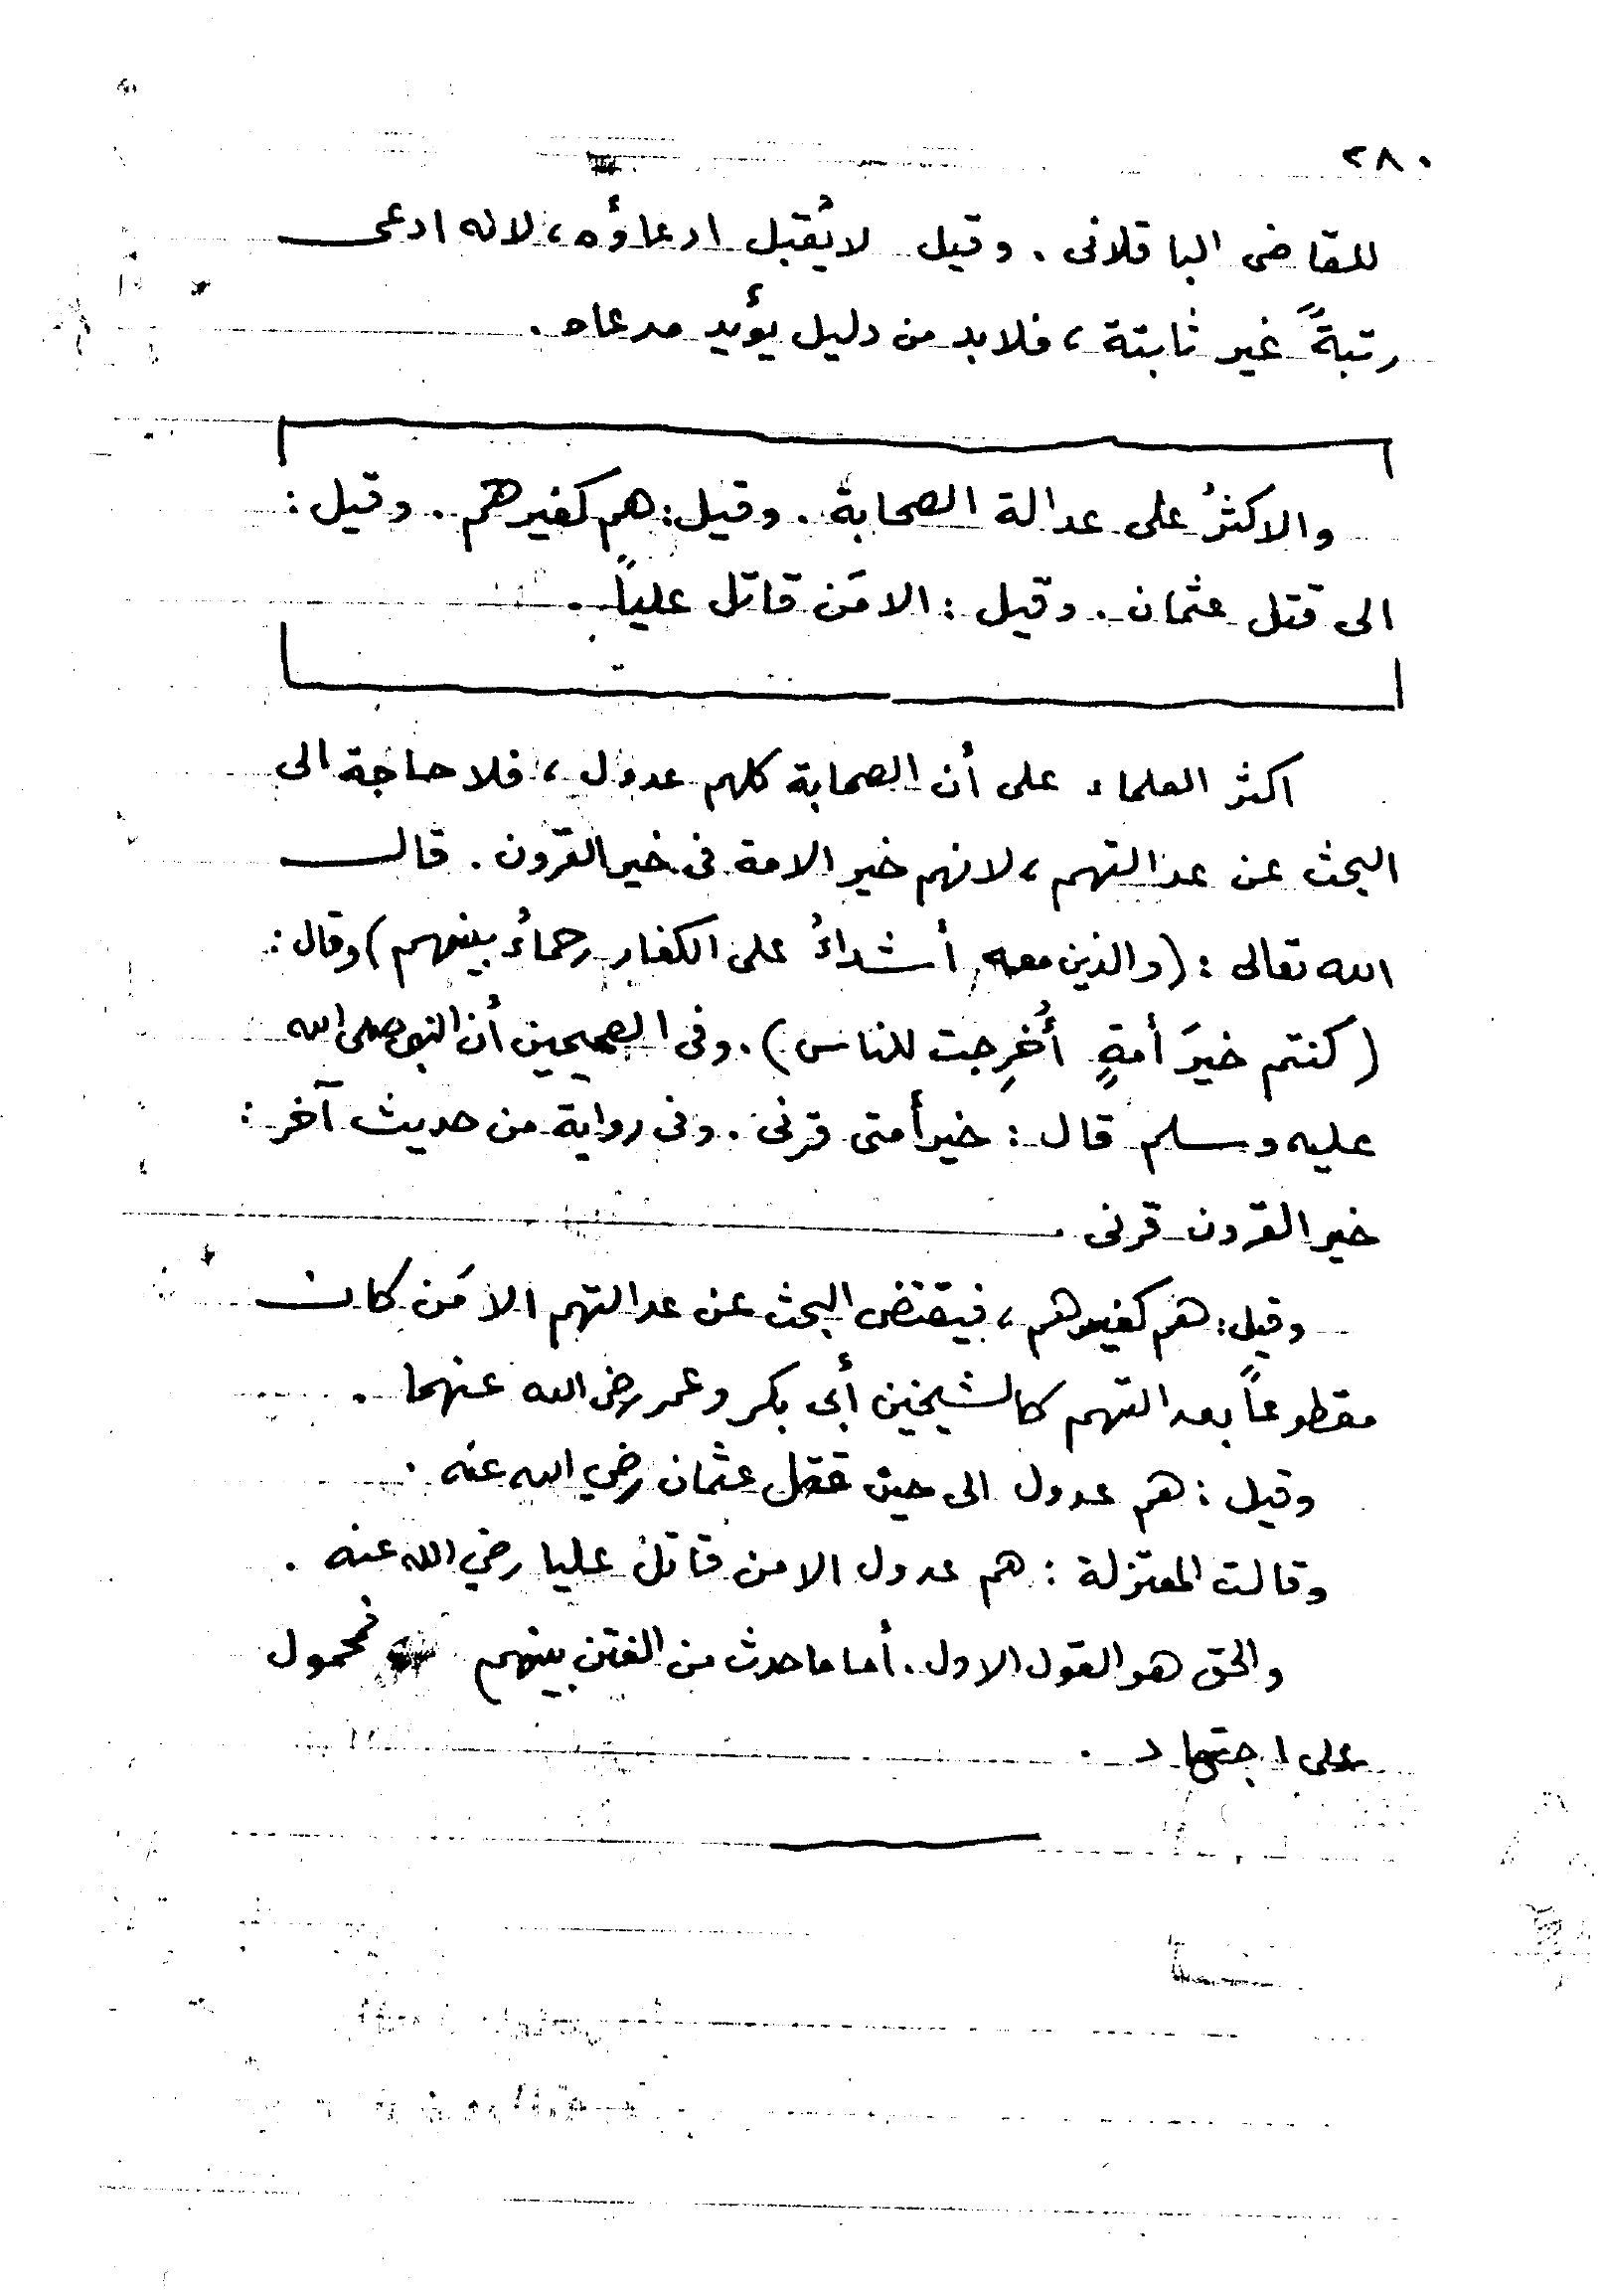 ٢٨٠
للقاضى الباقلانى . وقيل لايُقبل ادعاؤُه ، لانه ادعى
رتبةً غير ثابتة ، فلابد من دليل يؤيد مدعاه .
والاكثرُ على عدالة الصحابة . وقيل : هم كغيرهم . وقيل :
الى قتل عثمان . وقيل : الا مَن قاتل علياً .
اكثر العلماء على أن الصحابة كلهم عدول ، فلا حاجة الى
البحث عن عدالتهم ، لانهم خير الامة فى خير القرون . قال
الله تعالى : ( والذين معه أشداءُ على الكفار رحماءُ بينهم ) وقال :
( كنتم خيرَ أمةٍ أُخرِجت للناس ) . وفى الصحيحين أن النبى صلى الله
عليه وسلم قال : خير أمتى قرنى . وفى رواية من حديث آخر :
خير القرون قرنى .
وقيل : هم كغيرهم ، فيقتضى البحث عن عدالتهم الا مَن كان
مقطوعاً بعدالتهم كالشيخين أبى بكر وعمر رضى الله عنهما .
وقيل : هم عدول الى حين قتل عثمان رضي الله عنه .
وقالت المعتزلة : هم عدول الا من قاتل عليا رضي الله عنه .
والحق هو القول الاول . أما ما حدث من الفتن بينهم فمحمول
على اجتهاد .